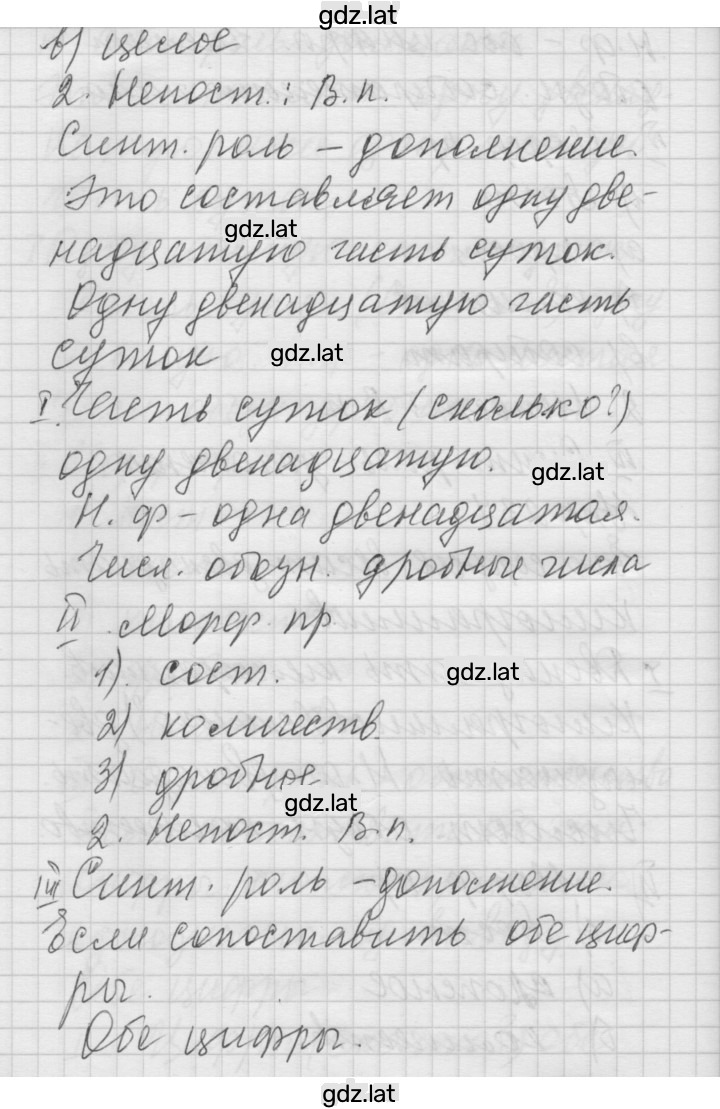 gdz.lat
в) целое
2. Непост.: В.п.
Синт. роль – дополнение.
Это составляет одну две-
gdz.lat
надцатую часть суток.
Одну двенадцатую часть
суток
gdz.lat
I. Часть суток (сколько?)
одну двенадцатую.
gdz.lat
Н. ф – одна двенадцатая.
Числ. обозн. дробные числа
II. Морф. пр
1). сост.
gdz.lat
2) количеств.
3) дробное
gdz.lat
2. Непост. В.п.
III Синт. роль – дополнение.
Если сопоставить обе циф-
ры.
Обе цифры.
gdz.lat